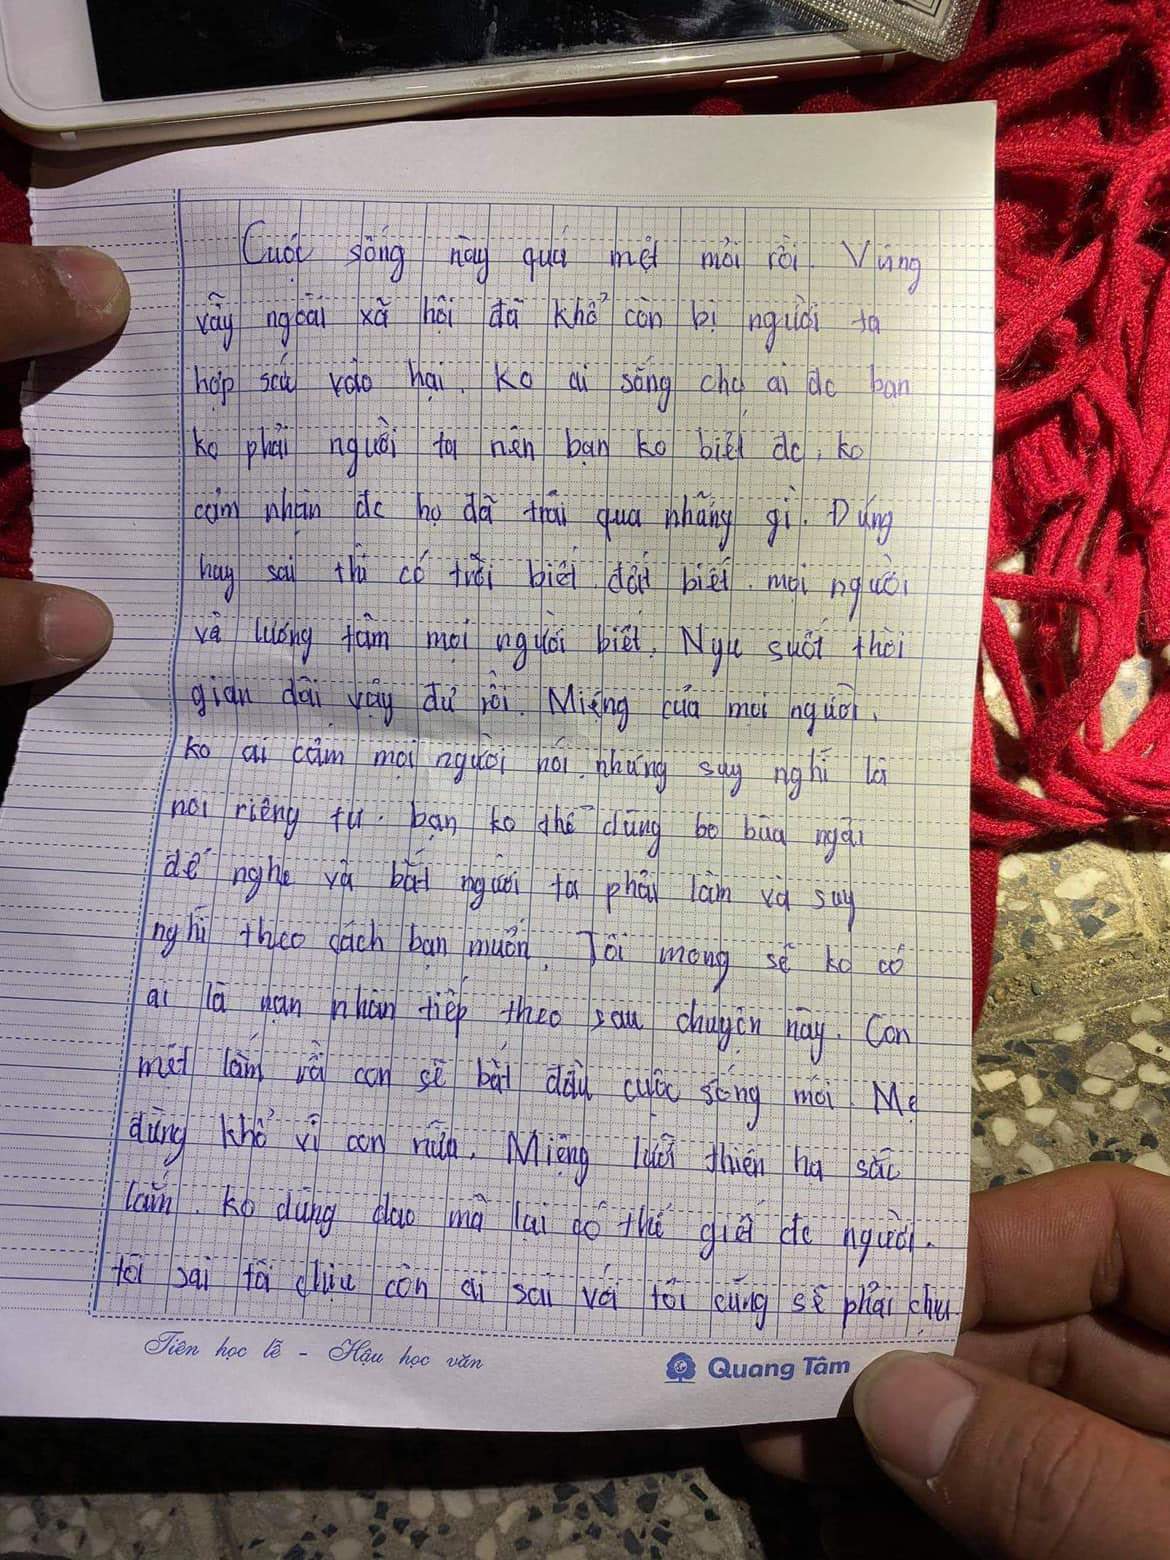 Cuộc sống này quá mệt mỏi rồi. Vùng
vẫy ngoài xã hội đã khổ còn bị người ta
hợp sức vào hại. Ko ai sống cho ai đc bạn
ko phải người ta nên bạn ko biết đc, ko
cảm nhận đc họ đã trãi qua nhãng gì. Đúng
hay sai thì có trời biết đất biết. mọi người
và lương tâm mọi người biết. Ngu suốt thời
gian dài vậy đủ rồi. Miệng của mọi người.
ko ai cấm mọi người nói. nhưng suy nghĩ là
nơi riêng tư. bạn ko thể dùng bo bùa ngải
để nghe và bắt người ta phải làm và suy
nghĩ theo cách bạn muốn. Tôi mong sẽ ko có
ai là nạn nhân tiếp theo sau chuyện này. Con
mệt lắm rồi con sẽ bắt đầu cuộc sống mới. Mẹ
đừng khổ vì con nữa. Miệng lưỡi thiên hạ sắc
lắm. ko dùng dao mà lại có thể giế đc người.
tôi sai tôi chịu còn ai sai với tôi cũng sẽ phải chịu
Tiên học lễ - Hậu học văn
Quang Tâm